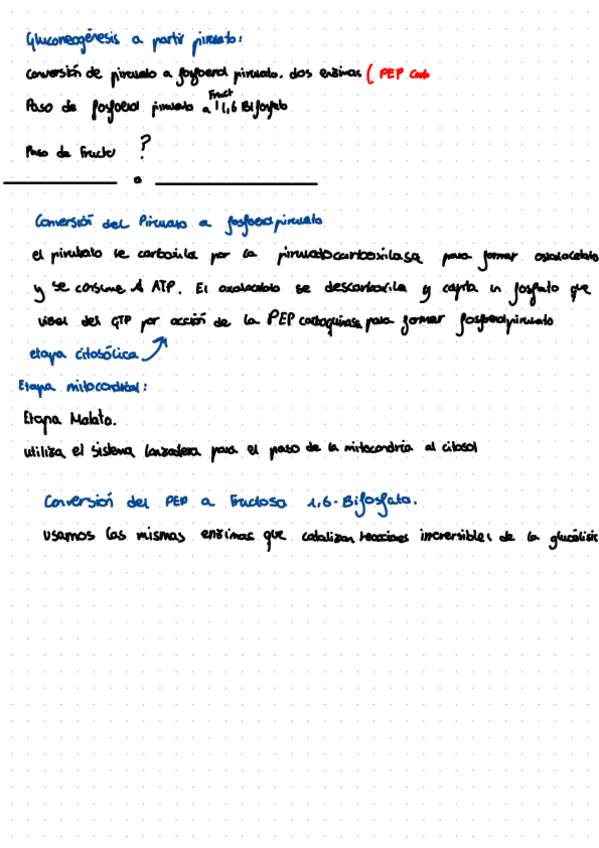 Gluconeogénesis a partir piruvato:
Conversión de piruvato a fosfoenol piruvato. dos enzimas ( PEP Carb
Paso de fosfoenol piruvato a Fruct 1,6 Bifosfato
Paso de Fructo ?
a
Conversión del Piruvato a fosfoenolpiruvato
el piruvato se carboxila por la piruvatocarboxilasa para formar oxalacetato
y se consume 1 ATP. El oxalacetato se descarboxila y capta un fosfato que
viene del GTP por acción de la PEP carboquinasa para formar fosfoenolpiruvato
etapa citosólica
Etapa mitocondrial:
Etapa Malato.
utiliza el sistema lanzadera para el paso de la mitocondria al citosol
Conversión del PEP a Fructosa 1,6-Bifosfato.
usamos las mismas enzimas que catalizan reacciones irreversibles de la glucólisis